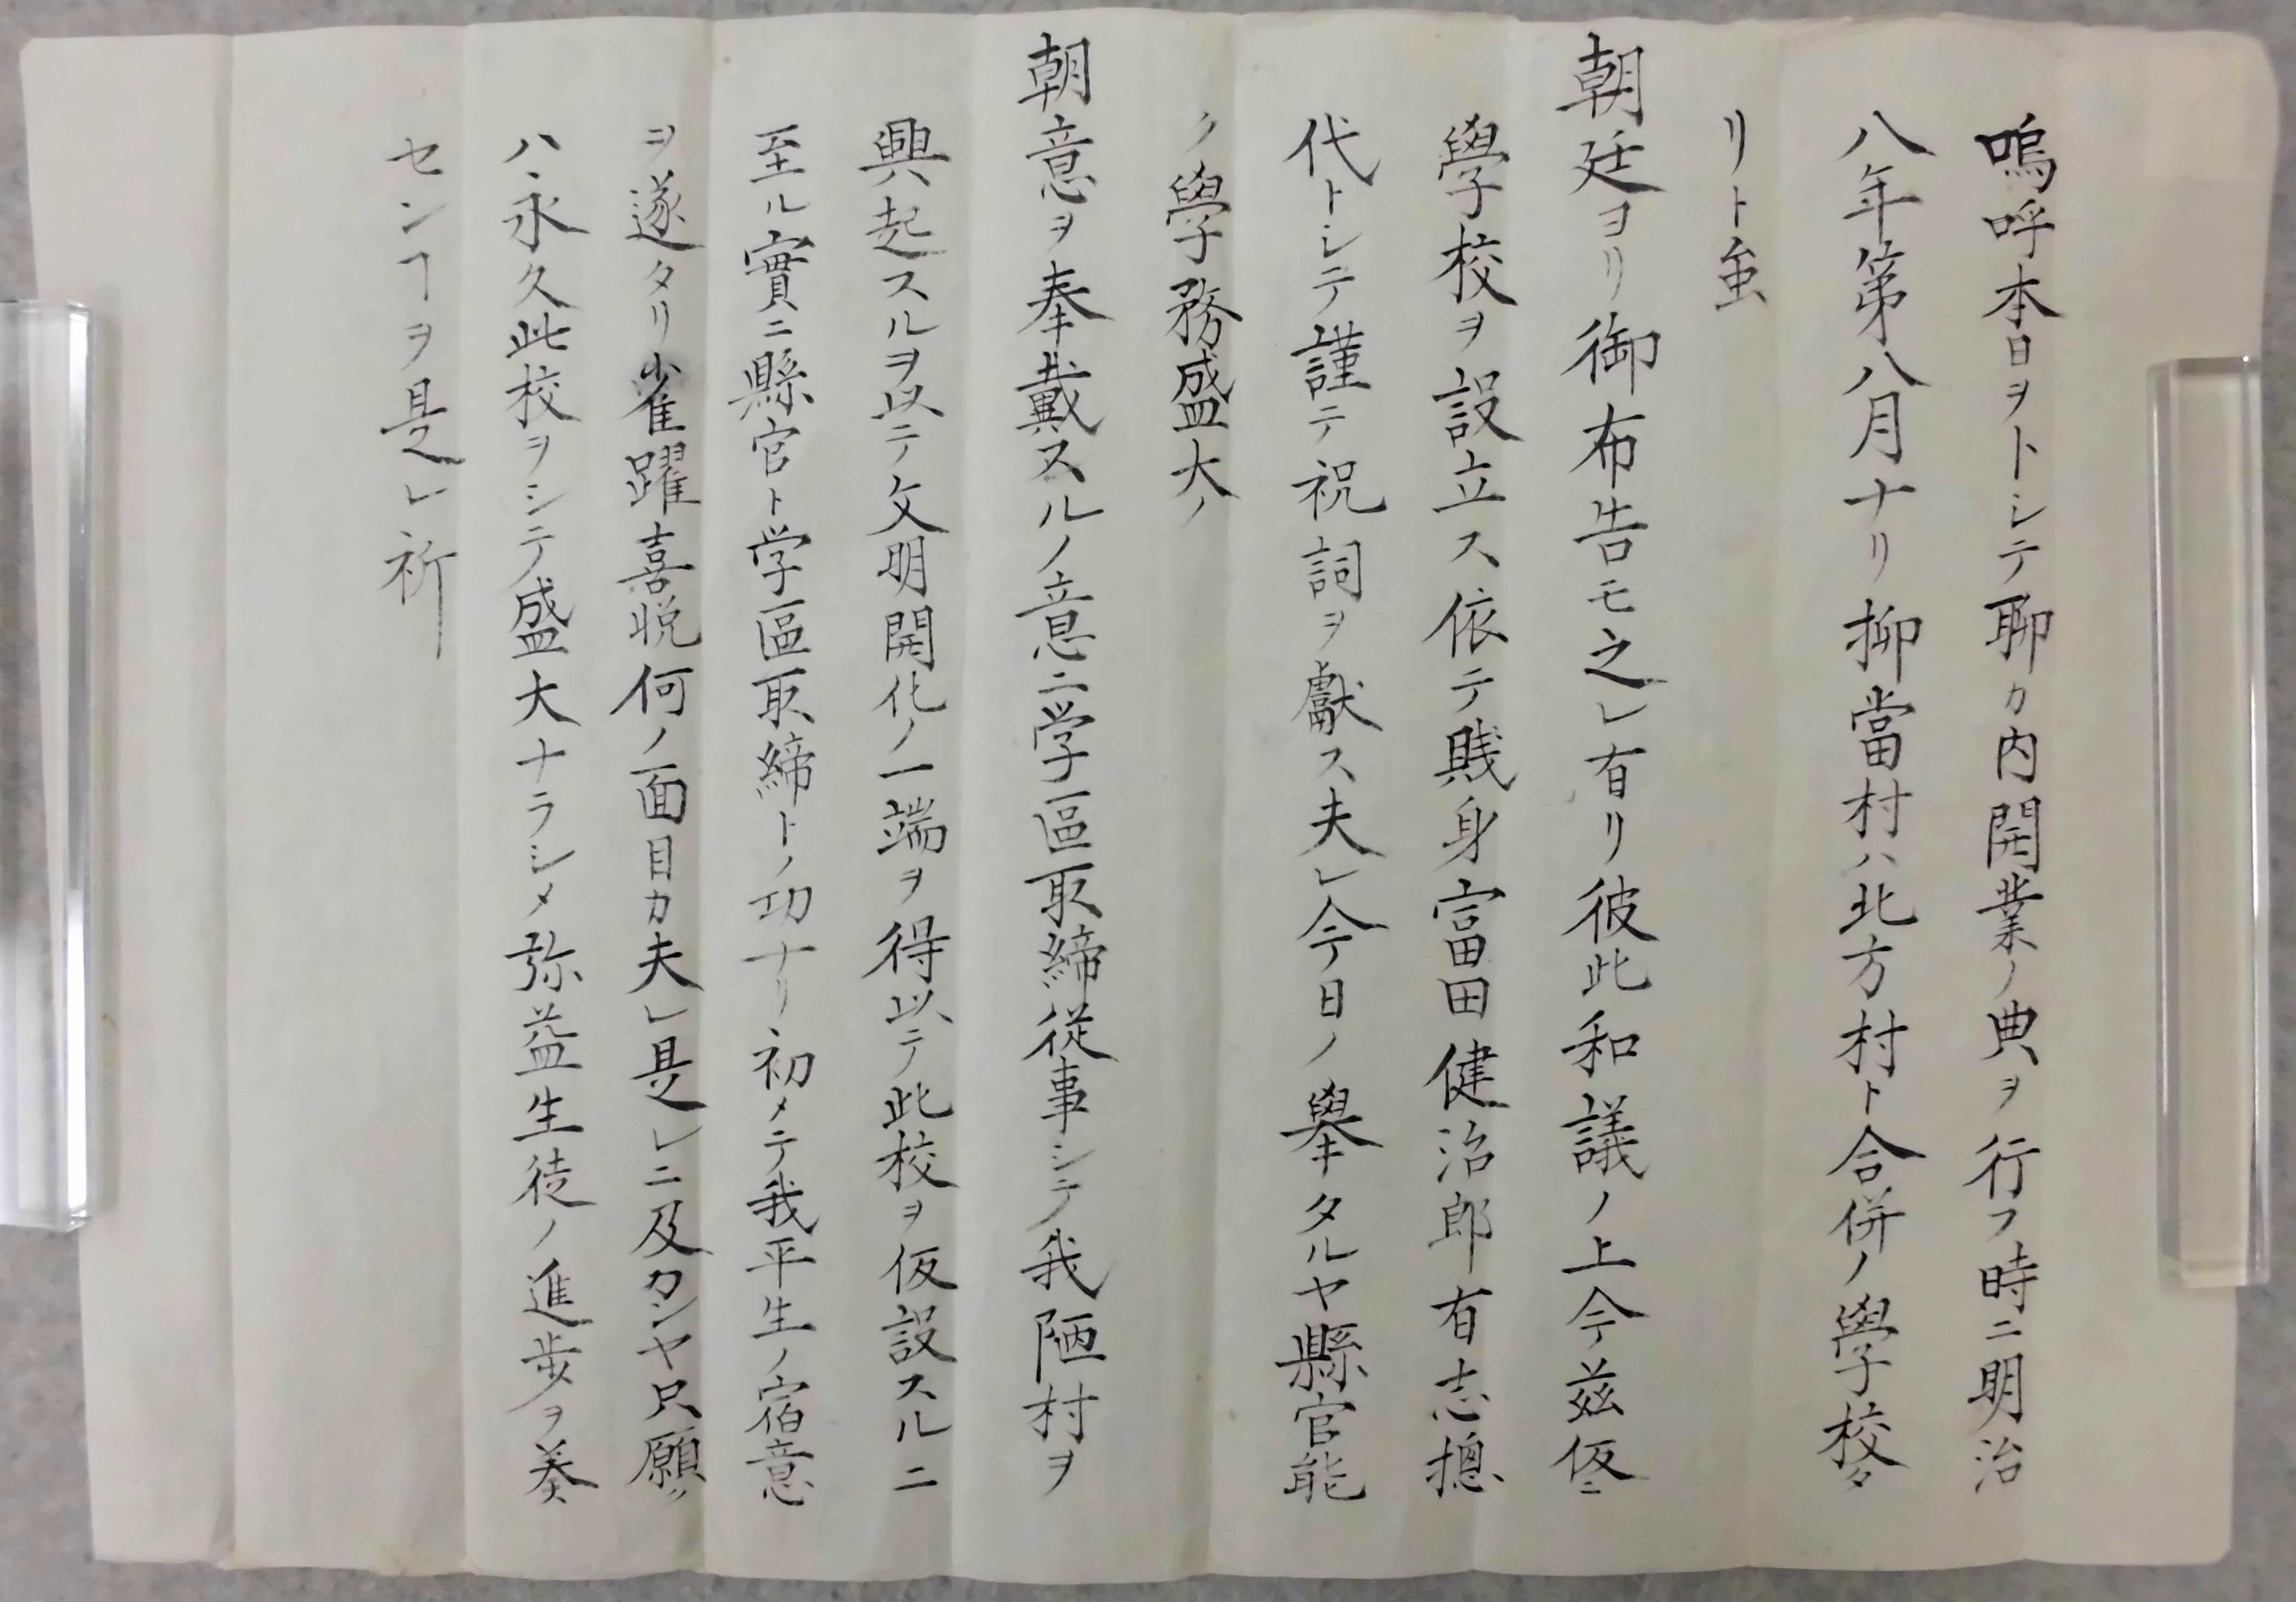 嗚呼本日ヲトシテ聊カ内開業ノ典ヲ行フ時ニ明治
八年第八月ナリ抑當村ハ北方村ト合併ノ學校タ
リト虽
朝廷ヨリ御布告モ之レ有リ彼此和議ノ上今茲仮ニ
學校ヲ設立ス依テ賎身富田健治郎有志摠
代トシテ謹テ祝詞ヲ獻ス夫レ今日ノ擧タルヤ縣官能
ク學務盛大ノ
朝意ヲ奉戴スルノ意ニ学區取締従事シテ我陋村ヲ
興起スルヲ以テ文明開化ノ一端ヲ得以テ此校ヲ仮設スルニ
至ル實ニ縣官ト学區取締トノ功ナリ初メテ我平生ノ宿意
ヲ遂タリ雀躍喜悦何ノ面目カ夫レ是レニ及カンヤ只願ク
ハ永久此校ヲシテ盛大ナラシメ弥益生徒ノ進歩ヲ奏
センヿヲ是レ祈